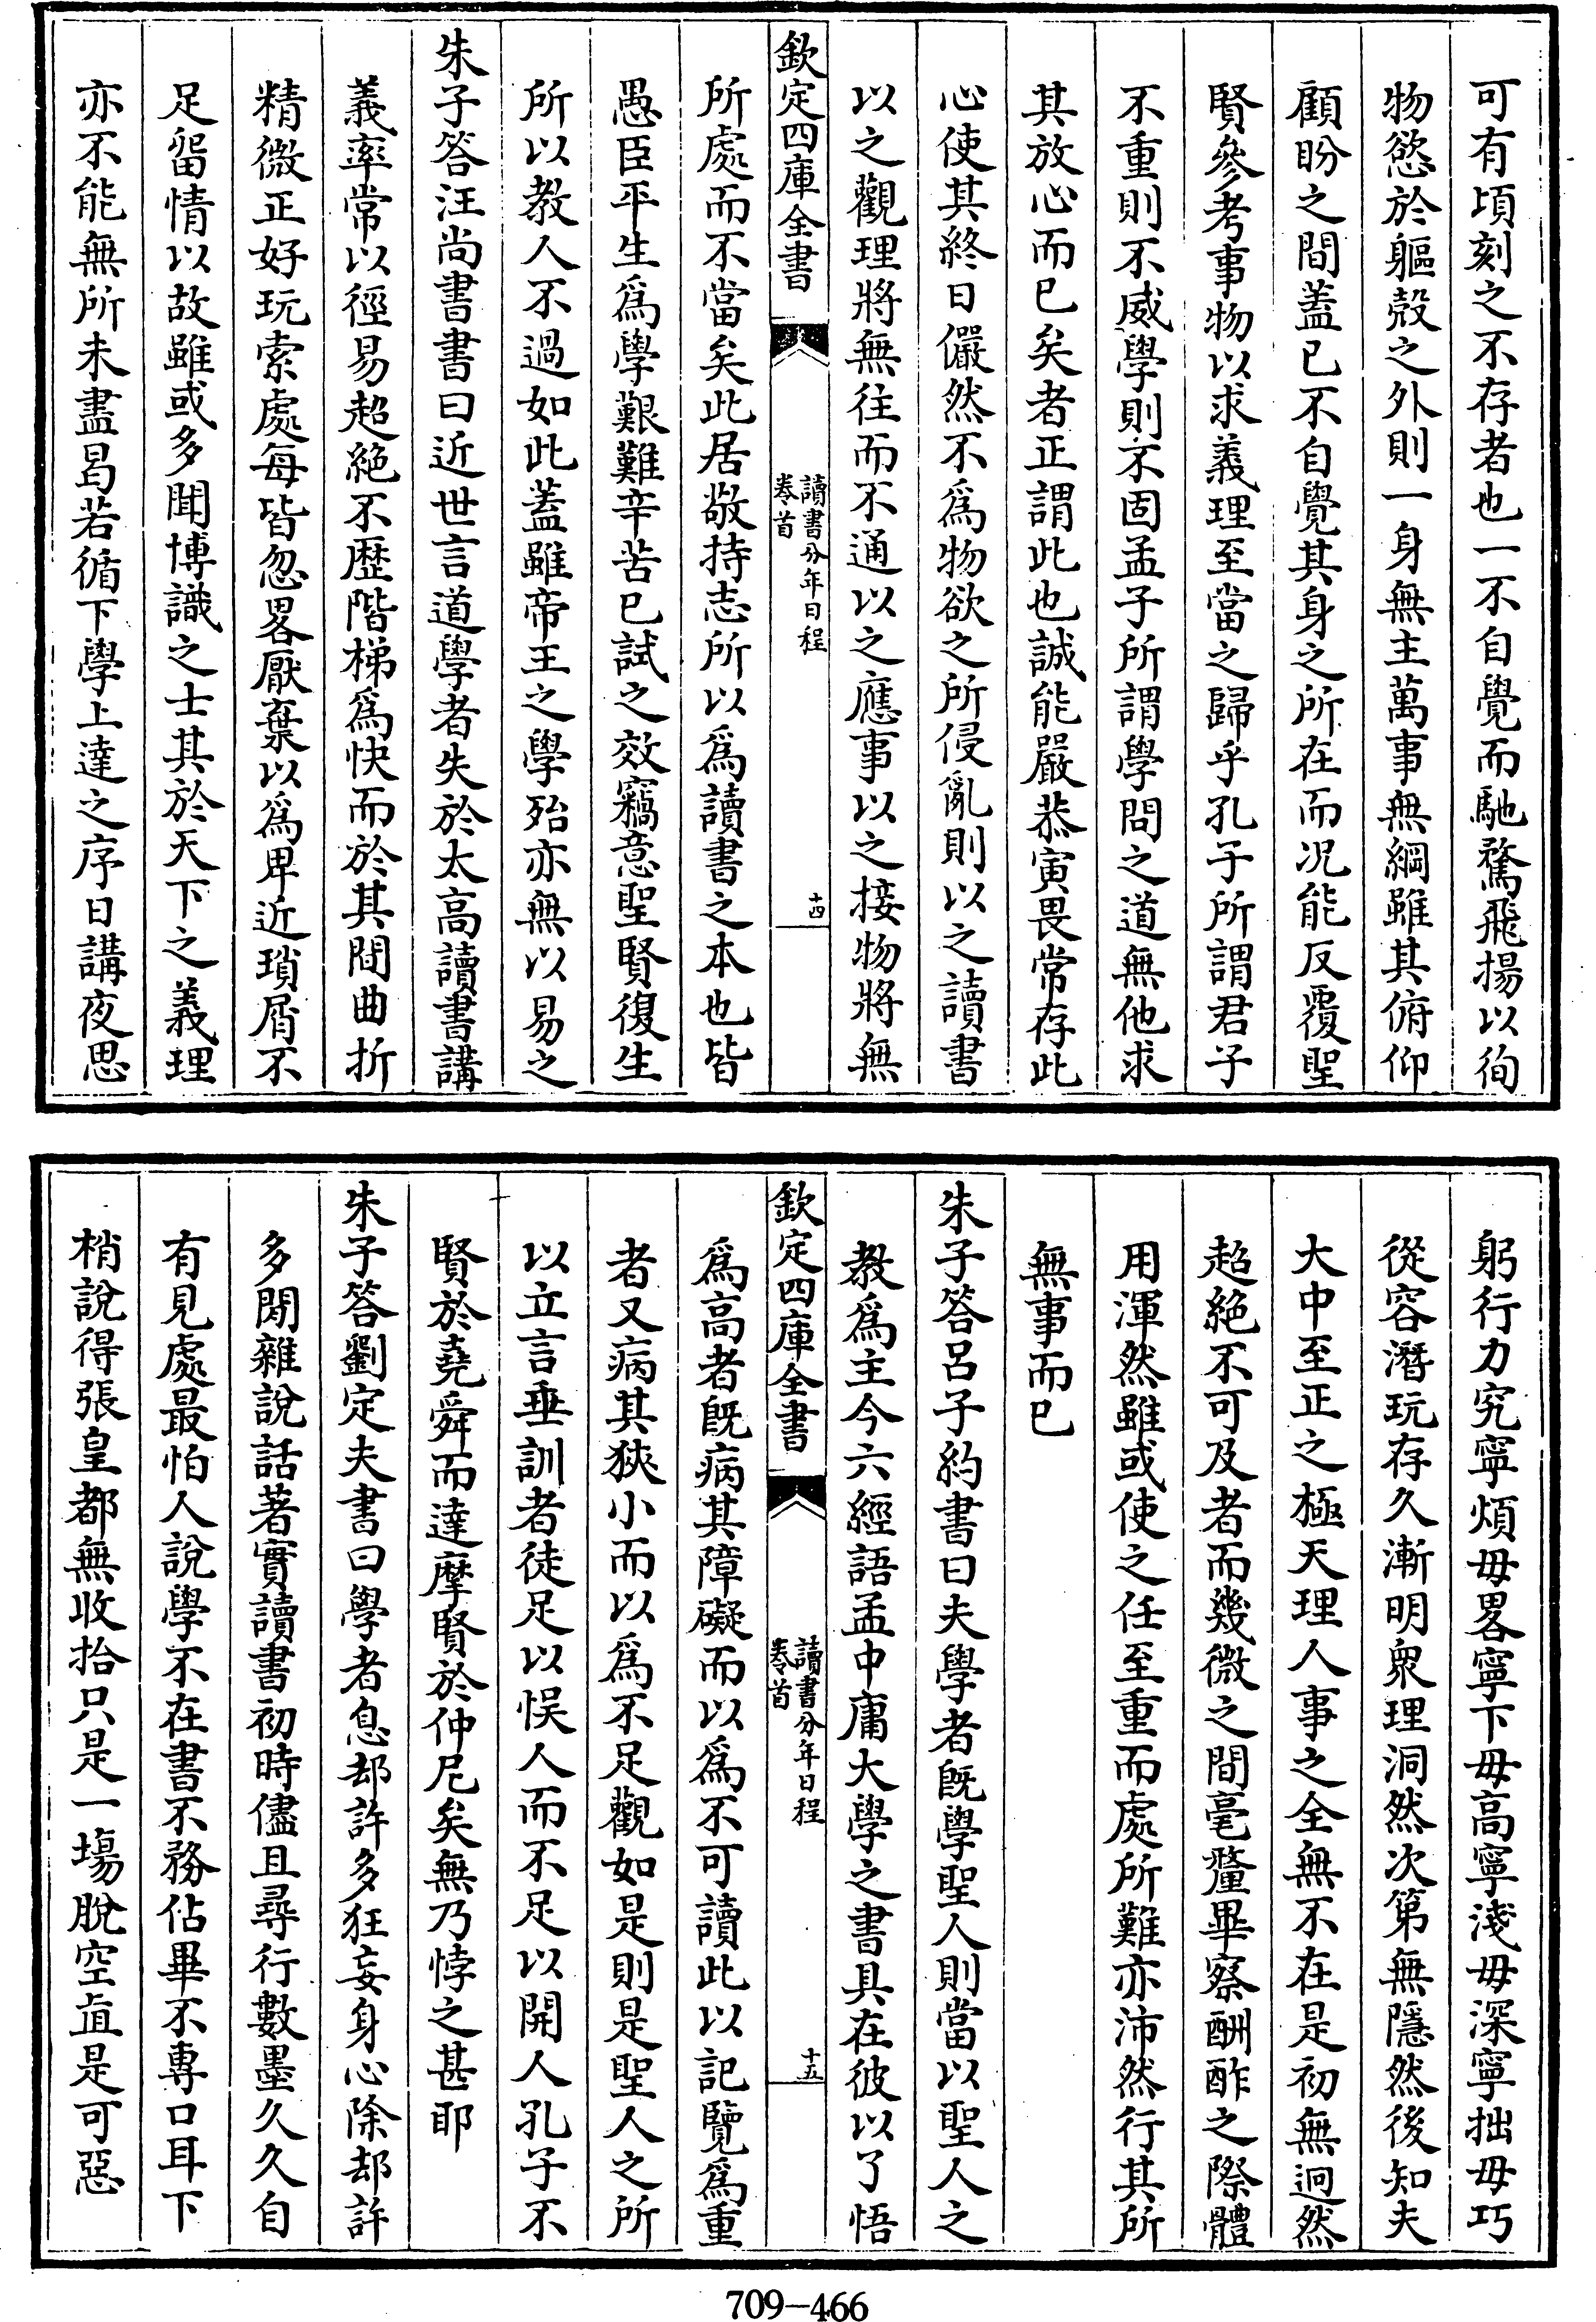 可有頃刻之不存者也一不自覺而馳騖飛揚以徇
物慾於軀殻之外則一身無主萬事無綱雖其俯仰
顧盼之間蓋已不自覺其身之所在而况能反覆聖
賢參考事物以求義理至當之歸乎孔子所謂君子
不重則不威學則不固孟子所謂學問之道無他求
其放心而已矣者正謂此也誠能嚴恭寅畏常存此
心使其終日儼然不爲物欲之所侵亂則以之讀書
以之觀理將無往而不通以之應事以之接物將無
欽定四庫全書
讀書分年日程
卷首
十四
所處而不當矣此居敬持志所以爲讀書之本也皆
愚臣平生爲學艱難辛苦已試之效竊意聖賢復生
所以教人不過如此蓋雖帝王之學殆亦無以易之
朱子答汪尚書書曰近世言道學者失於太高讀書講
義率常以徑易超絶不歴階梯爲快而於其間曲折
精微正好玩索處每皆忽畧厭棄以爲卑近瑣屑不
足留情以故雖或多聞博識之士其於天下之義理
亦不能無所未盡曷若循下學上達之序日講夜思
躬行力究寧煩毋畧寧下毋高寧淺毋深寧拙毋巧
從容潛玩存久漸明衆理洞然次第無隱然後知夫
大中至正之極天理人事之全無不在是初無迥然
超絶不可及者而幾微之間毫釐畢察酬酢之際體
用渾然雖或使之任至重而處所難亦沛然行其所
無事而已
朱子答呂子約書曰夫學者旣學聖人則當以聖人之
教爲主今六經語孟中庸大學之書具在彼以了悟
欽定四庫全書
讀書分年日程
卷首
十五
爲高者旣病其障礙而以爲不可讀此以記覽爲重
者又病其狹小而以爲不足觀如是則是聖人之所
以立言垂訓者徒足以悞人而不足以開人孔子不
賢於堯舜而達摩賢於仲尼矣無乃悖之甚耶
朱子答劉定夫書曰學者息却許多狂妄身心除却許
多閑雜說話著實讀書初時儘且尋行數墨久久自
有見處最怕人說學不在書不務佔畢不專口耳下
梢說得張皇都無收拾只是一場脫空直是可惡
709-466